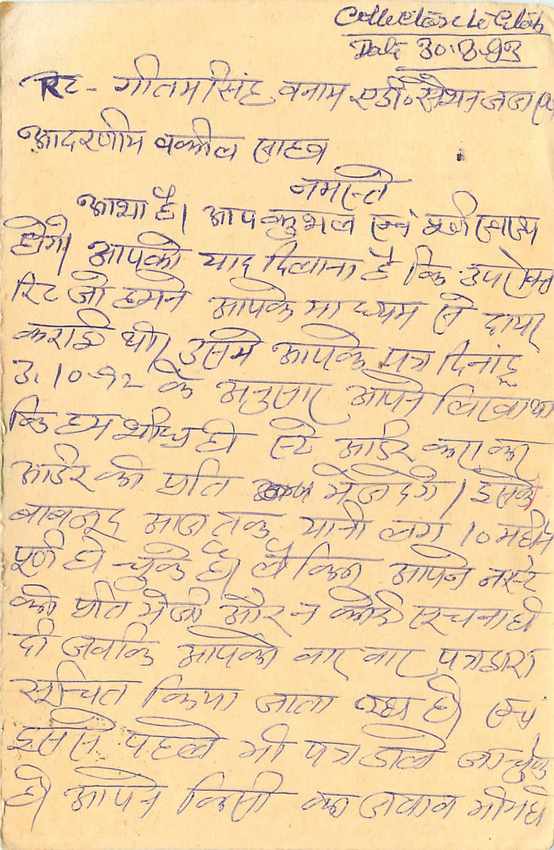 Date 30.8.93
रिट - गीतम सिंह बनाम एडी० सैशन जज
आदरणीय वकील साहब
नमस्ते
आशा है। आप कुशल एवं
होंगे। आपको याद दिलाना है कि उपरोक्त
रिट जो हमने आपके माध्यम से दायर
कराई थी। उसमें आपके पत्र दिनांक
3.10.92 के अनुसार आपने लिखा था
कि हम शीघ्र ही स्टे आर्डर करा कर
आर्डर की प्रति भेज देंगे। इसके
बाबजूद आज तक यानी लग 10 महीने
पूर्ण हो चुके है। लेकिन आपने न स्टे
की प्रति भेजी और न कोई सूचना ही
दी जबकि आपको बार बार पत्र द्वारा
सूचित किया जाता रहा है। एवं
इससे पहले भी पत्र डाले जा चुके
है। आपने किसी का जवाब भी नहीं